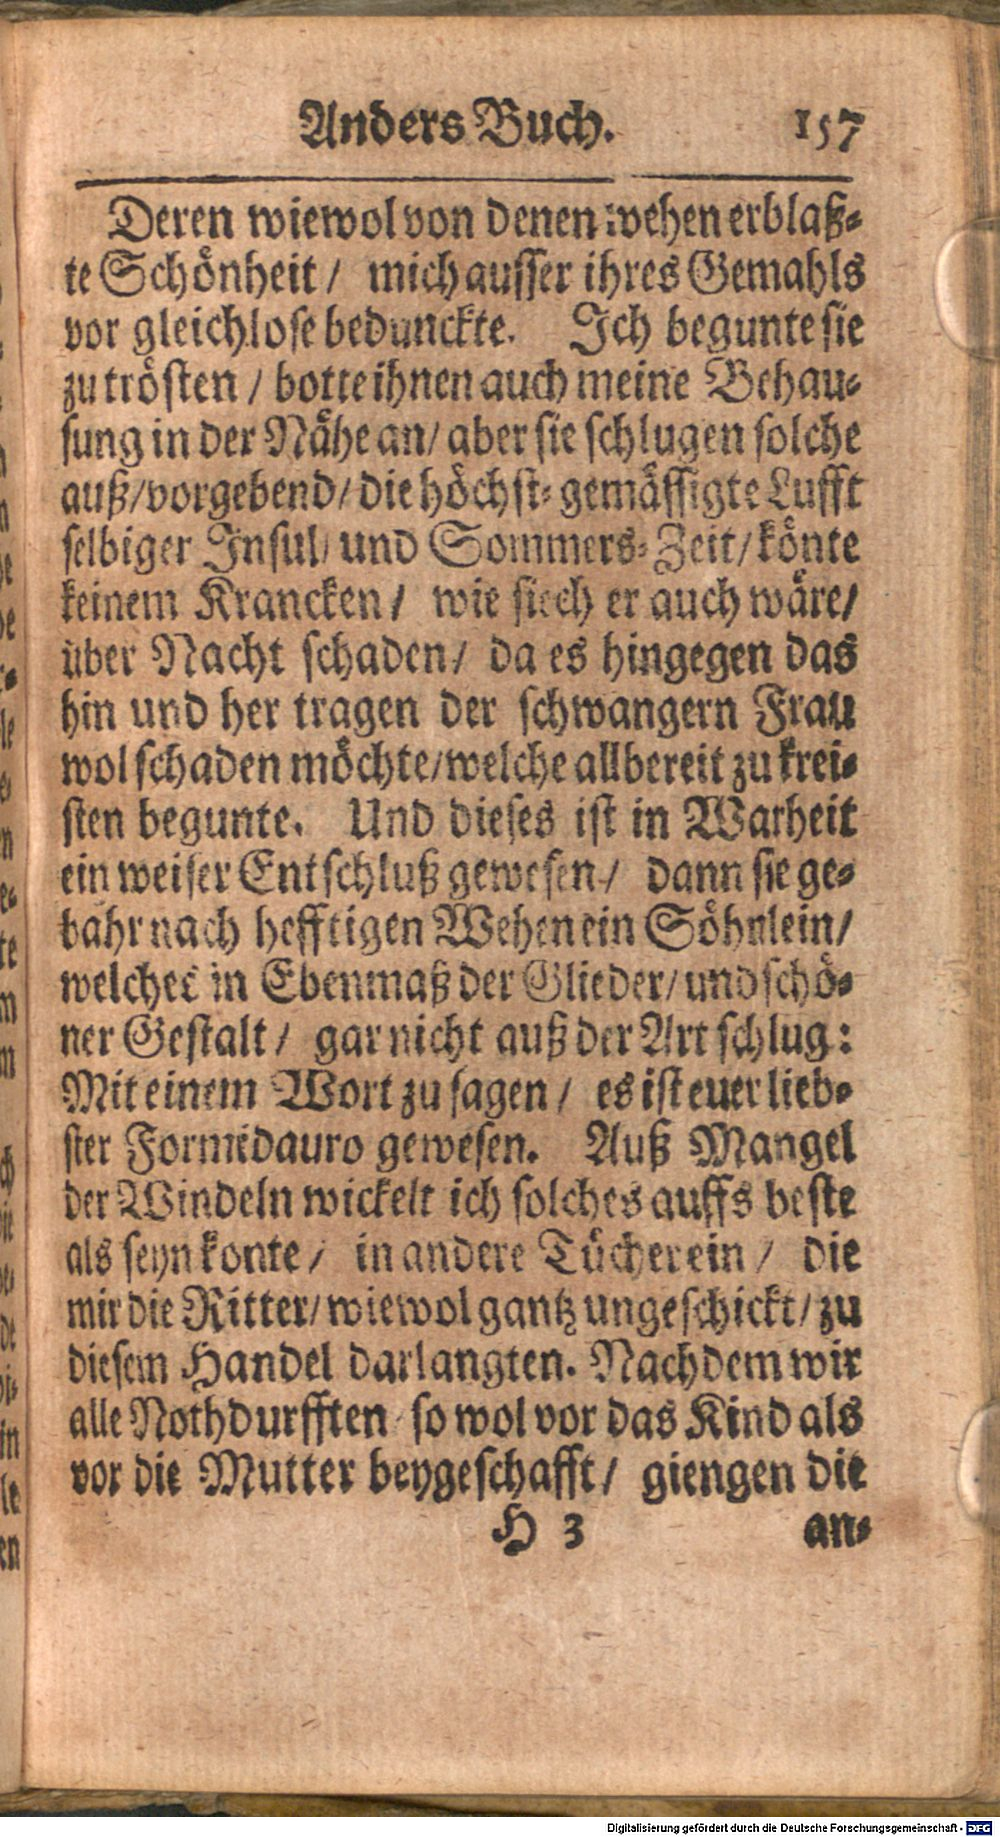 Anders Buch. 157
Deren wiewol von denen wehen erblaß-
te Schönheit / mich ausser ihres Gemahls
vor gleichlose bedunckte. Ich begunte sie
zu trösten / botte ihnen auch meine Behau-
sung in der Nähe an / aber sie schlugen solche
auß / vorgebend / die höchst-gemässigte Lufft
selbiger Insul / und Sommers-Zeit / könte
keinem Krancken / wie siech er auch wäre /
über Nacht schaden / da es hingegen das
hin und her tragen der schwangern Frau
wol schaden möchte / welche allbereit zu krei-
sten begunte. Und dieses ist in Warheit
ein weiser Entschluß gewesen / dann sie ge-
bahr nach hefftigen Wehen ein Söhnlein /
welches in Ebenmaß der Glieder / und schö-
ner Gestalt / gar nicht auß der Art schlug:
Mit einem Wort zu sagen / es ist euer lieb-
ster Formidauro gewesen. Auß Mangel
der Windeln wickelt ich solches auffs beste
als seyn konte / in andere Tücher ein / die
mir die Ritter / wiewol gantz ungeschickt / zu
diesem Handel darlangten. Nachdem wir
alle Nothdurfften so wol vor das Kind als
vor die Mutter beygeschafft / giengen die
H 3 an-
Digitalisierung gefördert durch die Deutsche Forschungsgemeinschaft - DFG